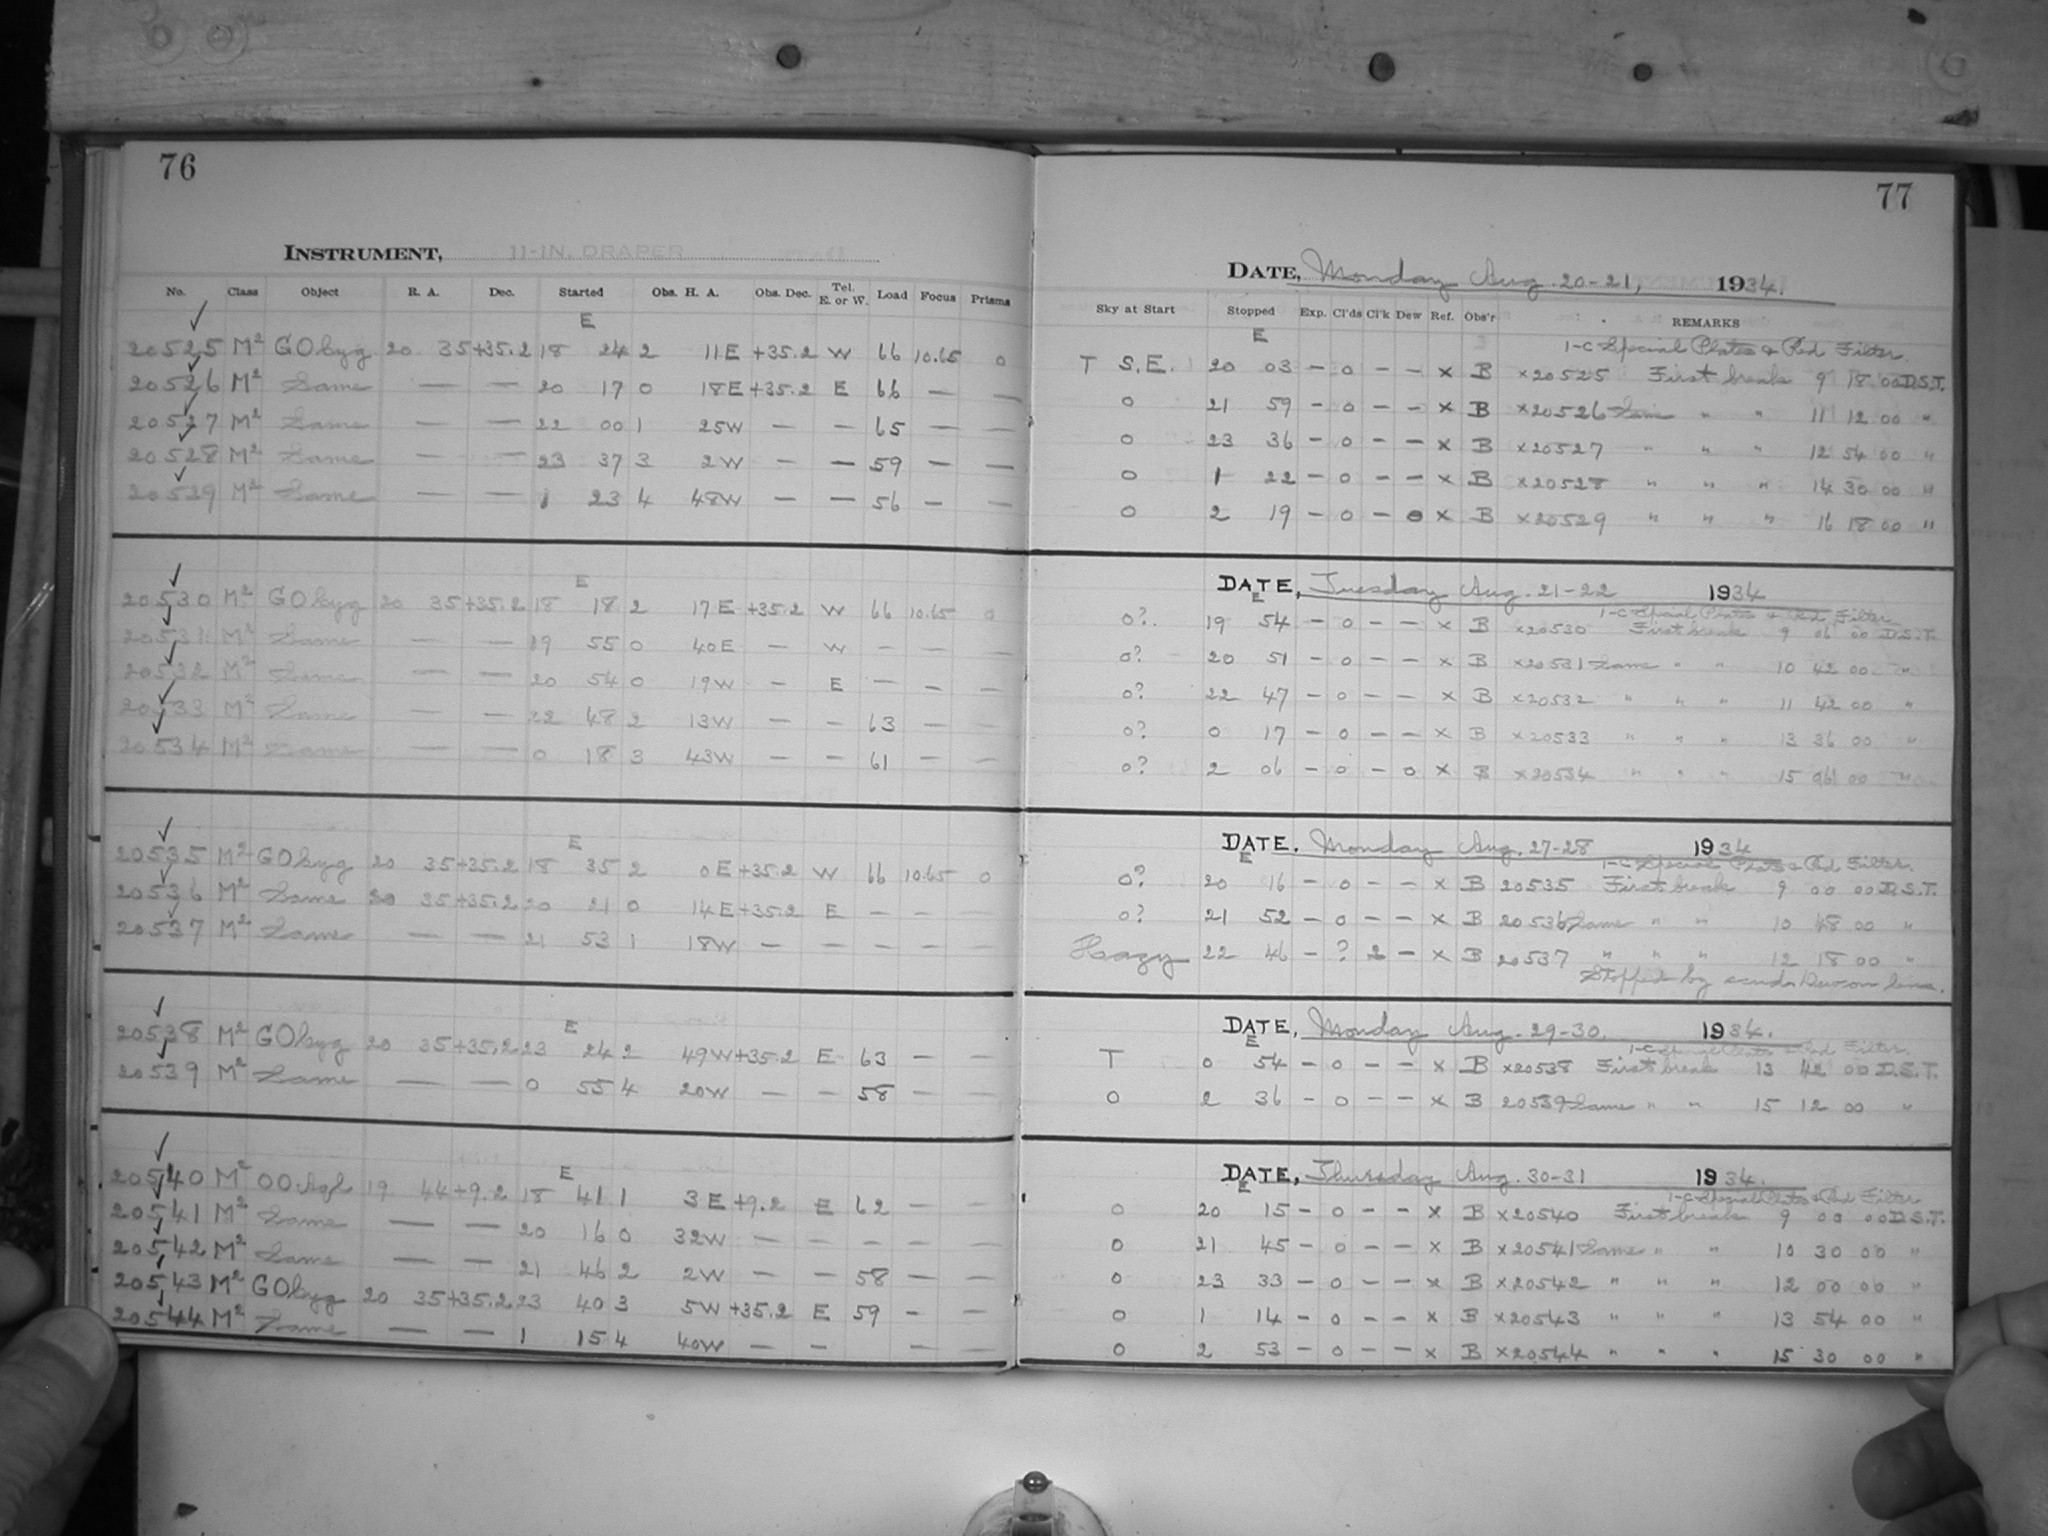 76
INSTRUMENT, 11-IN. DRAPER
No. Class Object R. A. Dec. Started Obs. H. A. Obs. Dec. Tel. E. or W. Load Focus Prisms
E
20525 M² GO kyg 20 35 +35.2 18 24 2 11E +35.2 W 66 10.65 0
20526 M² Same — — 20 17 0 18E +35.2 E 66 — —
20527 M² Same — — 22 00 1 25W — — 65 — —
20528 M² Same — — 23 37 3 2W — — 59 — —
20529 M² Same — — 1 23 4 48W — — 56 — —
E
20530 M² GO kyg 20 35 +35.2 18 18 2 17E +35.2 W 66 10.65 0
20531 M² Same — — 19 55 0 40E — W — — —
20532 M² Same — — 20 54 0 19W — E — — —
20533 M² Same — — 22 48 2 13W — — 63 — —
20534 M² Same — — 0 18 3 43W — — 61 — —
E
20535 M² GO kyg 20 35 +35.2 18 35 2 0E +35.2 W 66 10.65 0
20536 M² Same 20 35 +35.2 20 21 0 14E +35.2 E — — —
20537 M² Same — — 21 53 1 18W — — — — —
E
20538 M² GO kyg 20 35 +35.2 23 24 2 49W +35.2 E 63 — —
20539 M² Same — — 0 55 4 20W — — 58 — —
E
20540 M² OO Aql 19 44 +9.2 18 41 1 3E +9.2 E 62 — —
20541 M² Same — — 20 16 0 32W — — — — —
20542 M² Same — — 21 46 2 2W — — 58 — —
20543 M² GO kyg 20 35 +35.2 23 40 3 5W +35.2 E 59 — —
20544 M² Same — — 1 15 4 40W — — — —
77
DATE, Monday Aug. 20-21, 1934.
Sky at Start Stopped Exp. Cl'ds Cl'k Dew Ref. Obs'r REMARKS
E 1-C Special Plates & Red Filter.
T S.E. 20 03 – 0 – – x B x20525 First break 9 18 00 D.S.T.
0 21 59 – 0 – – x B x20526 Same " " 11 12 00 "
0 23 36 – 0 – – x B x20527 " " " 12 54 00 "
0 1 22 – 0 – – x B x20528 " " " 14 30 00 "
0 2 19 – 0 – 0 x B x20529 " " " 16 18 00 "
DATE, Tuesday Aug. 21-22 1934
E 1-C Special Plates & Red Filter
0? 19 54 – 0 – – x B x20530 First break 9 06 00 D.S.T.
0? 20 51 – 0 – – x B x20531 Same " " 10 42 00 "
0? 22 47 – 0 – – x B x20532 " " " 11 42 00 "
0? 0 17 – 0 – – x B x20533 " " " 13 36 00 "
0? 2 06 – 0 – 0 x B x20534 " " " 15 06 00 "
DATE. Monday Aug. 27-28 1934
E 1-C Special Plates & Red Filter.
0? 20 16 – 0 – – x B 20535 First break 9 00 00 D.S.T.
0? 21 52 – 0 – – x B 20536 Same " " 10 48 00 "
Hazy 22 46 – ? 2 – x B 20537 " " " 12 18 00 "
Stopped by lens.
DATE, Monday Aug. 29-30 1934.
E 1-C Special Plates & Red Filter.
T 0 54 – 0 – – x B x20538 First break 13 42 00 D.S.T.
0 2 36 – 0 – – x B 20539 Same " " 15 12 00 "
DATE, Thursday Aug. 30-31 1934.
E 1-C Special Plates & Red Filter
0 20 15 – 0 – – x B x20540 First break 9 00 00 D.S.T.
0 21 45 – 0 – – x B x20541 Same " " 10 30 00 "
0 23 33 – 0 – – x B x20542 " " " 12 00 00 "
0 1 14 – 0 – – x B x20543 " " " 13 54 00 "
0 2 53 – 0 – – x B x20544 " " " 15 30 00 "